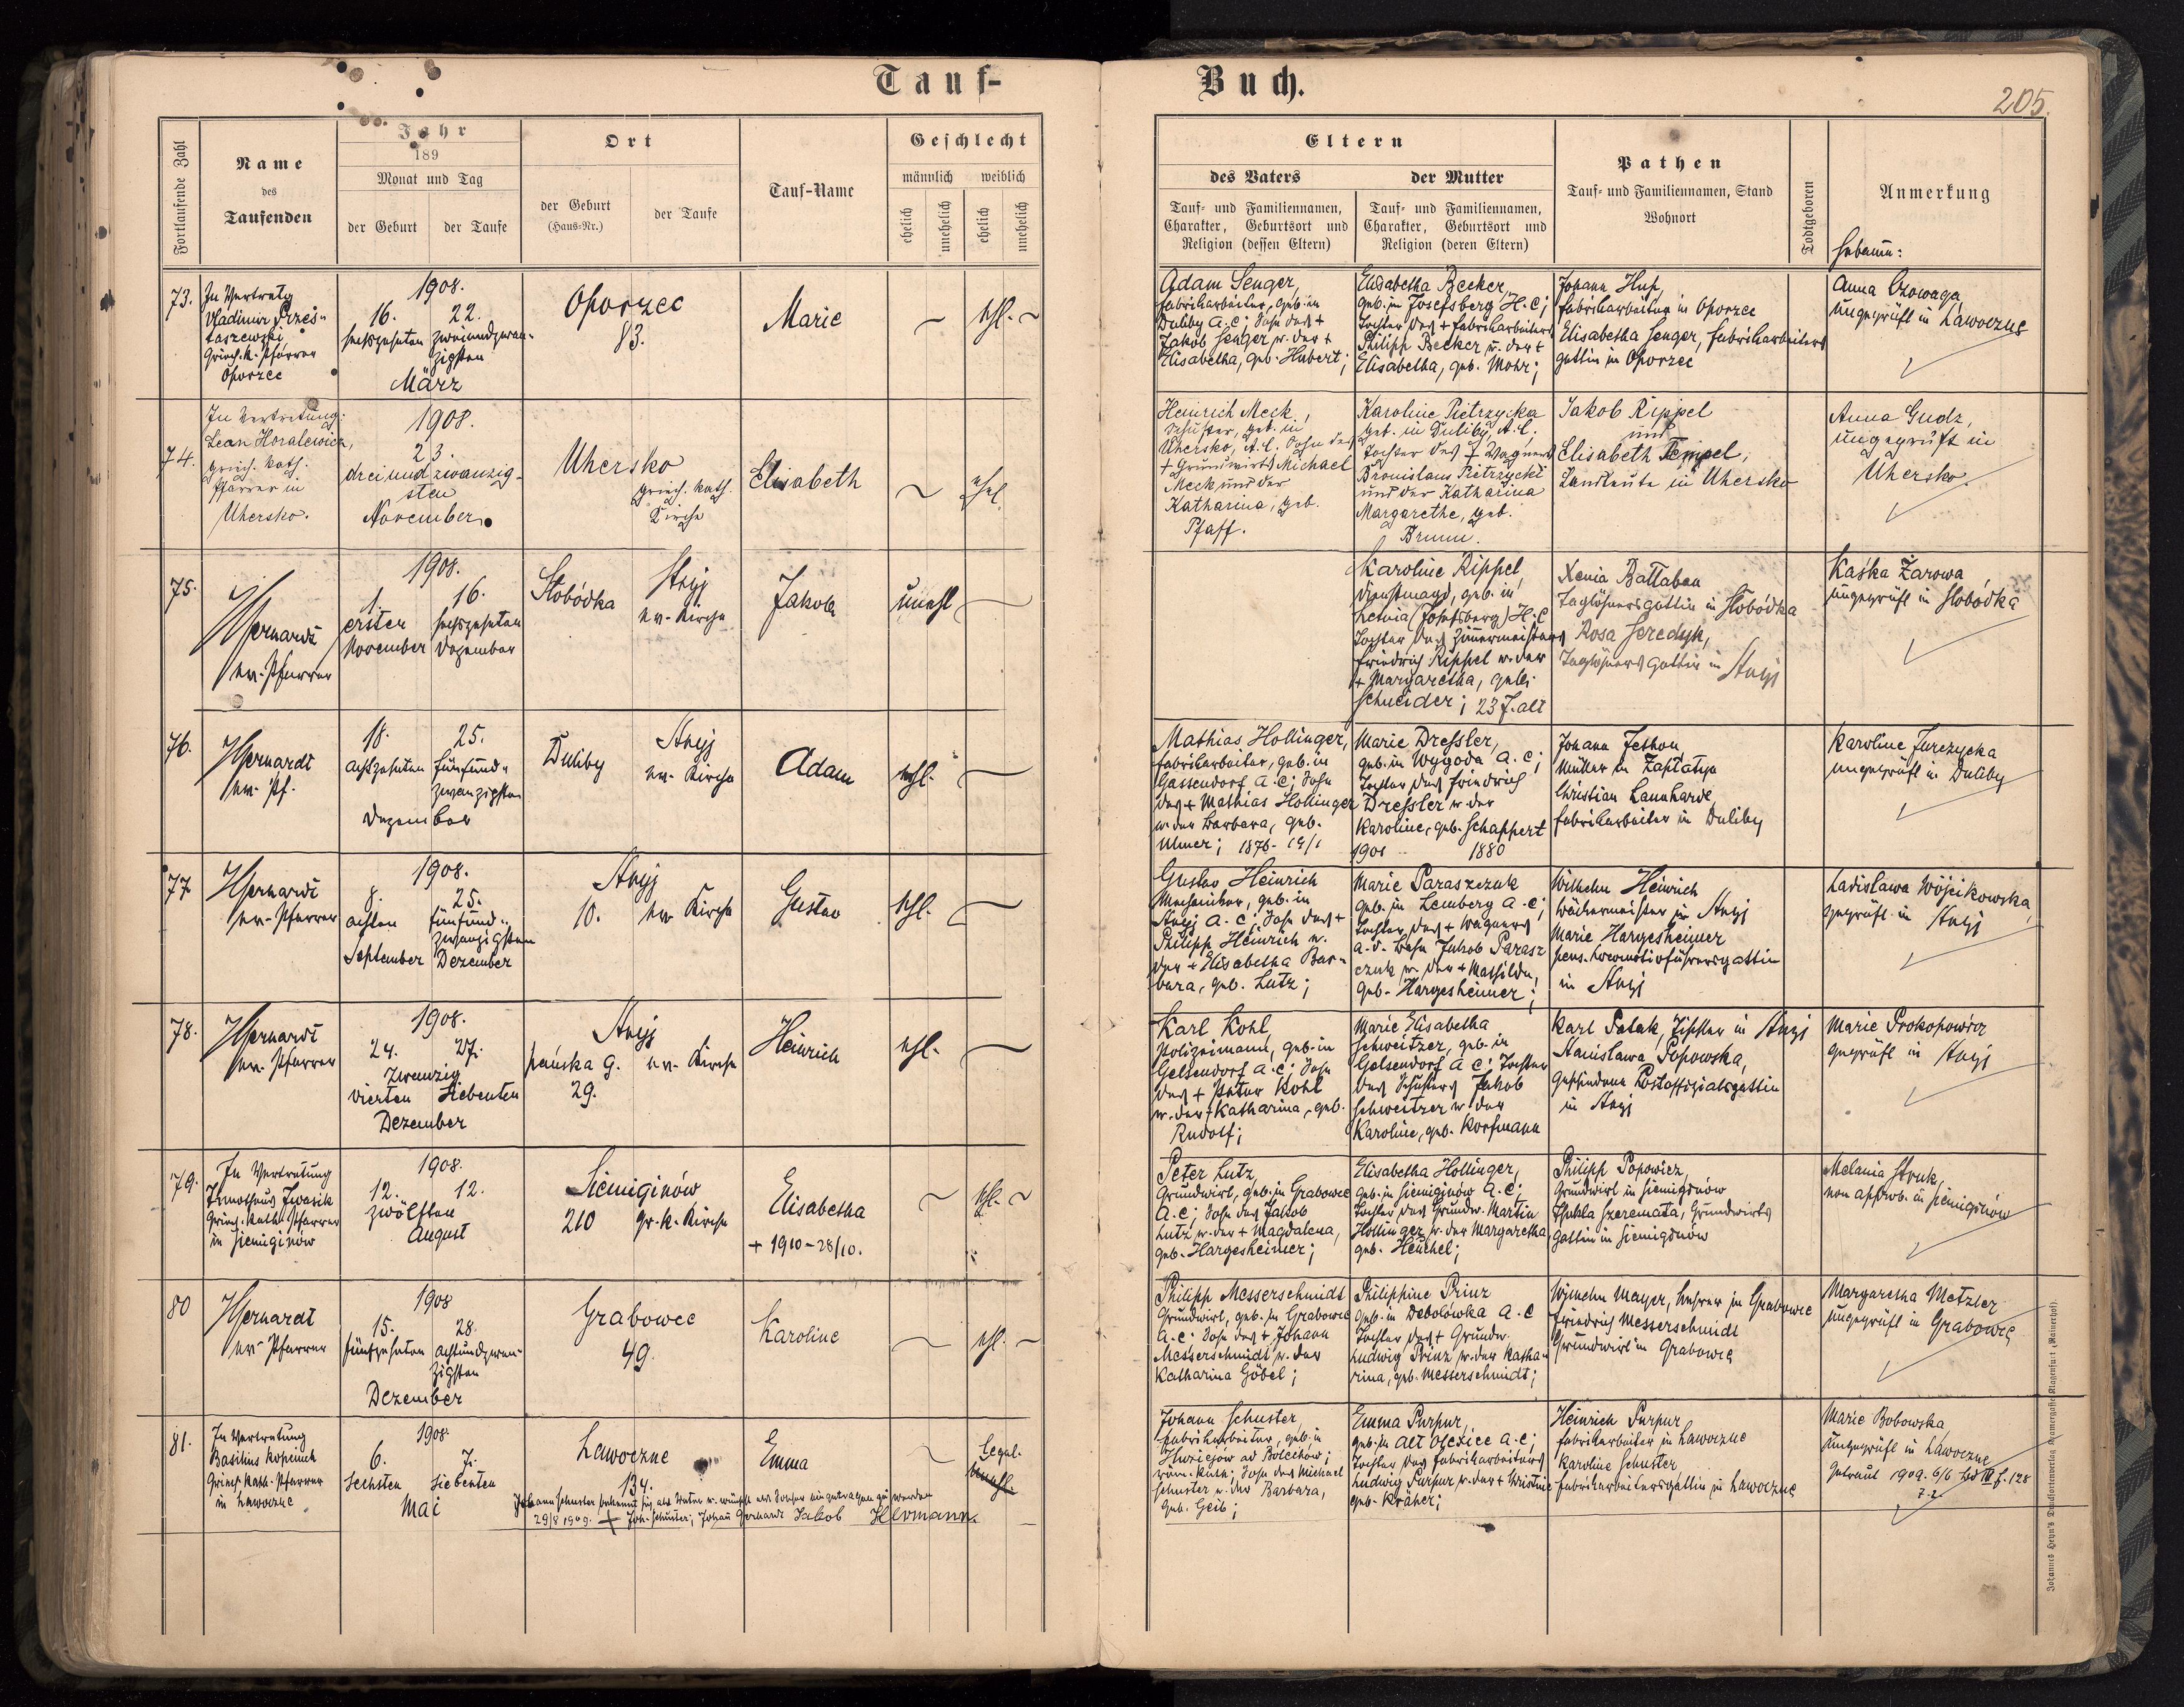 Tauf-
Buch.
205.
Fortlaufende Zahl
Name
des
Taufenden
Jahr
189
Monat und Tag
der Geburt
der Taufe
Ort
der Geburt
(Haus-Nr.)
der Taufe
Tauf-Name
Geschlecht
männlich
weiblich
ehelich
unehelich
ehelich
unehelich
Eltern
des Vaters
der Mutter
Tauf- und Familiennamen,
Charakter, Geburtsort und
Religion (dessen Eltern)
Tauf- und Familiennamen,
Charakter, Geburtsort und
Religion (deren Eltern)
Pathen
Tauf- und Familiennamen, Stand
Wohnort
Todtgeboren
Anmerkung
Hebamme:
73.
In Vertretg
Vladimir Przes-
taszewski
Griech.k. Pfarrer
Oporzec
1908.
16. 22.
sechszehnten zweiundzwan-
zigsten
März
Oporzec
83.
Marie
ehl.
Adam Senger,
Fabriksarbeiter, geb. in
Duliby A.C; Sohn des +
Jakob Senger u. der +
Elisabetha, geb. Hubert;
Elisabetha Becker,
geb. in Josefsberg H.C;
Tochter des + Fabriksarbeiters
Philipp Becker u. der +
Elisabetha, geb. Mohr;
Johann Hup,
Fabriksarbeiter in Oporzec
Elisabetha Senger, Fabriksarbeiters
gattin in Oporzec
Anna Czowaga,
ungeprüft in Lawoczne
74.
In Vertretung:
Leon Horalewicz,
griech. kath.
Pfarrer in
Uhersko.
1908.
23.
dreiundzwanzig-
sten
November.
Uhersko
griech. kath.
Kirche
Elisabeth
ehel.
Heinrich Meck,
Schuster, geb. in
Uhersko, A.C. Sohn des
+ Grundwirts Michael
Meck und der
Katharina, geb.
Pfaff.
Karoline Pietrzycka
geb. in Duliby, A.C.
Tochter des + Wagners
Bronislaus Pietrzycki
und der Katharina
Margarethe, geb.
Brunn.
Jakob Rippel
und
Elisabeth Tempel,
Landleute in Uhersko
Anna Gudz,
ungeprüft in
Uhersko.
75.
JGerhardt
ev. Pfarrer
1908.
1. 16.
ersten sechszehnten
November Dezember
Slobódka
Stryj
ev. Kirche
Jakob
unehl
Karoline Rippel,
Dienstmagd, geb. in
Letnia (Josefsberg) H.C
Tochter des Zimmermeisters
Friedrich Rippel u. der
+ Margaretha, geb.
Schneider; 23 J. alt
Xenia Battaban
Taglöhnersgattin in Slobódka
Rosa Seredyk,
Taglöhnersgattin in Stryj
Kaśka Zarowa,
ungeprüft in Slobódka
76.
JGerhardt
ev. Pf.
18. 25.
achtzehnten fünfund-
zwanzigsten
Dezember
Duliby
Stryj
ev. Kirche
Adam
ehl.
Mathias Hollinger,
Fabriksarbeiter, geb. in
Gassendorf A.C; Sohn
des + Mathias Hollinger
u. der Barbara, geb.
Ulmer; 1876- 19/1
Marie Dressler,
geb. in Wygoda A.C;
Tochter des Friedrich
Dressler u. der
Karoline, geb. Schappert
1901 1880
Johann Jeskon,
Müller in Zaplatyn
Christian Launhardt,
Fabriksarbeiter in Duliby
Karoline Jurczycka
ungeprüft in Duliby
77
JGerhardt
ev. Pfarrer
1908.
8. 25.
achten fünfund-
zwanzigsten
September Dezember
Stryj
10. ev Kirche
Gustav
ehl.
Gustav Heinrich
Mechaniker, geb. in
Stryj A.C; Sohn des +
Philipp Heinrich u.
der + Elisabetha Bar-
bara, geb. Lutz;
Marie Paraszczuk
geb. in Lemberg A.C;
Tochter des + Wagners
a.d. Bahn Jakob Parasz
czuk u. der + Mathilde,
geb. Hargesheimer;
Wilhelm Heinrich
Wächermeister in Stryj
Marie Hargesheimer
pens. Lokomotivführersgattin
in Stryj
Ladislawa Wójcikowska,
geprüft in Stryj
78.
JGerhardt
ev. Pfarrer
1908.
24. 27.
zwanzig
vierten siebenten
Dezember
Stryj
pańska G. ev. Kirche
29.
Heinrich
ehl.
Karl Kohl,
Polizeimann, geb. in
Gelsendorf A.C; Sohn
des + Peter Kohl
u. der + Katharina, geb.
Rudolf;
Marie Elisabetha
Schweitzer, geb. in
Gelsendorf A C; Tochter
des Schusters Jakob
Schweitzer u. der
Karoline, geb. Korfmann
Karl Polak, Tischler in Stryj
Stanislawa Popowska,
Postoffizialsgattin
in Stryj
Marie Prokopowicz
geprüft in Stryj
79.
In Vertretung
Timotheus Iwasik
Griech. kath. Pfarrer
in Siemiginow
1908.
12. 12.
zwölften
August
Siemiginów
210 gr. k. Kirche
Elisabetha
+ 1910-28/10.
ehl.
Peter Lutz,
Grundwirt, geb. in Grabowce
A.C; Sohn des Jakob
Lutz u. der + Magdalena,
geb. Hargesheimer;
Elisabetha Hollinger,
geb. in Siemiginow A.C;
Tochter des Grundw. Martin
Hollinger u. der Margaretha,
geb. Henchel;
Philipp Popowicz,
Grundwirt in Siemiginow
Thekla Szeremata, Grundwirts
gattin in Siemiginow
Melania Struk,
non approb. in Siemiginów
80
JGerhardt
ev Pfarrer
1908
15. 28.
fünfzehnten achtundzwan-
zigsten
Dezember
Grabowce
49.
Karoline
ehl.
Philipp Messerschmidt
Grundwirt, geb. in Grabowce
A.C: Sohn des + Johann
Messerschmidt u. der
Katharina Göbel;
Philippine Prinz
geb. in Debolówka A.C
Tochter des + Grundw.
Ludwig Prinz u. der Katha-
rina, geb. Messerschmidt;
Wilhelm Mayer, Lehrer in Grabowce
Friedrich Messerschmidt
Grundwirt in Grabowce
Margaretha Metzler
ungeprüft in Grabowce
81.
In Vertretung
Basilius Kopciuch
Griech kath. Pfarrer
in Lawoczne
1908.
6. 7.
sechsten siebenten
Mai
Lawoczne
134.
Johann Schuster bekennt sich als Vater u. wünscht als solcher eingetragen zu werden
29/8 1909. + Joh. Schuster; Johann Gerhardt Jakob Hermann.
Emma
Legal.
unehl.
Johann Schuster,
Fabriksarbeiter, geb. in
Hoziejów ad Bolechów;
röm. kath; Sohn des Michael
Schuster u. der Barbara,
geb. Geib;
Emma Purpur,
geb. in Alt Olexice A.C;
Tochter des Fabriksarbeiters
Ludwig Purpur u. der + Christine
geb. Kräher;
Heinrich Purpur,
Fabriksarbeiter in Lawoczne
Karoline Schuster
Fabriksarbeitersgattin in Lawoczne
Marie Bobowska,
ungeprüft in Lawoczne
Getraut 1909. 6/6 Bd IV f. 128
7.2.
Johannes Heyn's Drucksortenverlag Kramergasse Klagenfurt (Rainerhof)